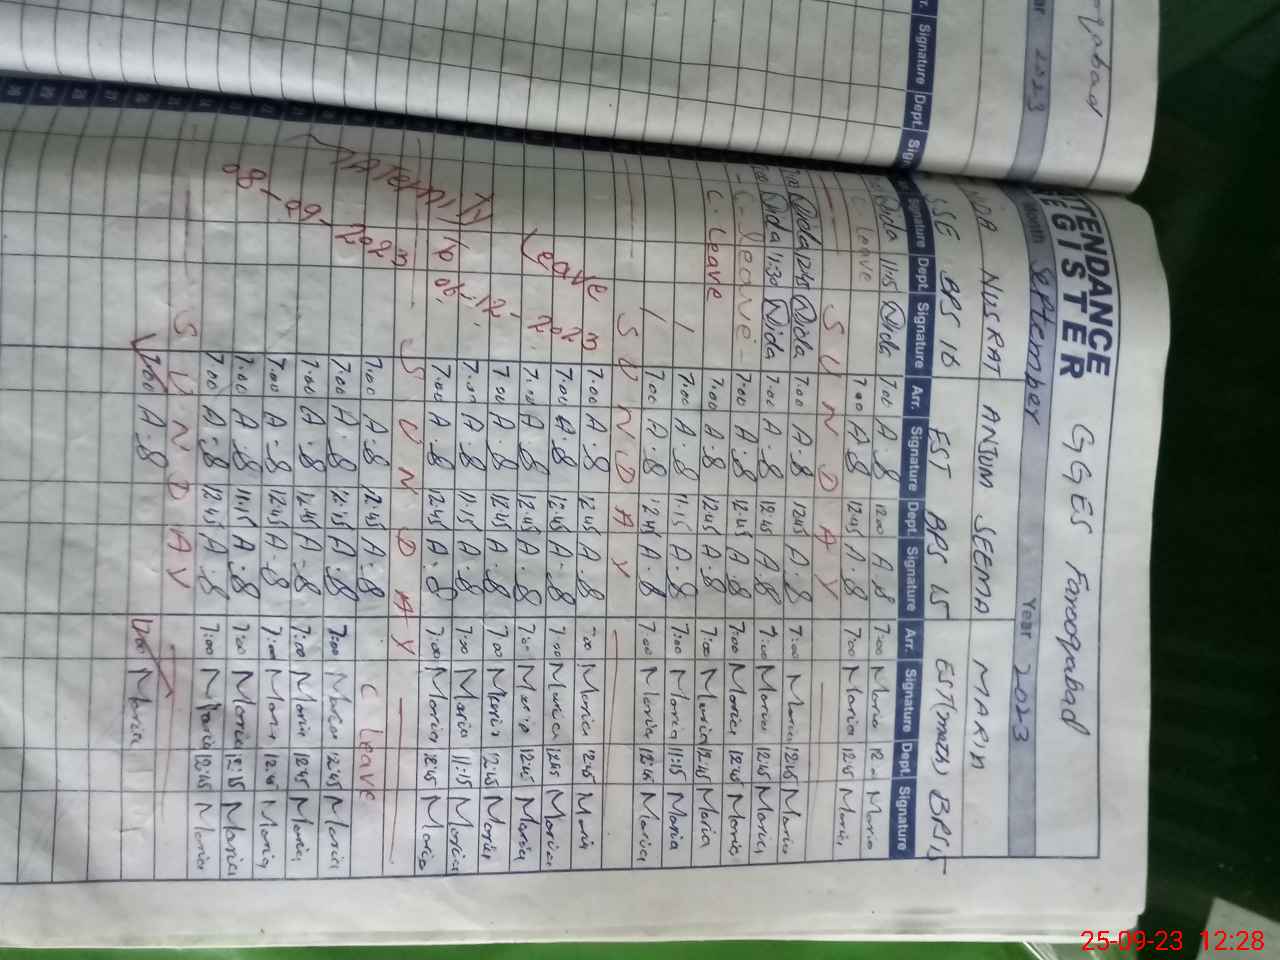 ATTENDANCE REGISTER GGES Farooqabad
Month September Year 2023
NIDA NUSRAT ANJUM SEEMA MARIA
SSE BPS 16 EST BPS 15 EST(math) BPS15
Signature Dept. Signature Arr. Signature Dept. Signature Arr. Signature Dept. Signature
Nida 11:45 Nida 7:00 A.S 12:00 A.S 7:00 Maria Maria
C. leave 7:00 A.S 12:45 A.S 7:00 Maria 12:45 Maria
SUNDAY
Nida 12:45 Nida 7:00 A.S 12:45 A.S 7:00 Maria 12:45 Maria
Nida 11:30 Nida 7:00 A.S 12:45 A.S 7:00 Maria 12:45 Maria
- C. Leave - 7:00 A.S 12:45 A.S 7:00 Maria 12:45 Maria
C. Leave 7:00 A.S 12:45 A.S 7:00 Maria 12:45 Maria
7:00 A.S 11:15 A.S 7:00 Maria 11:15 Maria
7:00 A.S 12:45 A.S 7:00 Maria 12:45 Maria
SUNDAY
7:00 A.S 12:45 A.S 7:00 Maria 12:45 Maria
7:00 A.S 12:45 A.S 7:00 Maria 12:45 Maria
7:00 A.S 12:45 A.S 7:00 Maria 12:45 Maria
7:00 A.S 12:45 A.S 7:00 Maria 12:45 Maria
7:00 A.S 11:15 A.S 7:00 Maria 11:15 Maria
7:00 A.S 12:45 A.S 7:00 Maria 12:45 Maria
MATERNITY Leave
08-09-2023 To 06-12-2023
SUNDAY
7:00 A.S 12:45 A.S C leave
7:00 A.S 12:45 A.S 7:00 Maria 12:45 Maria
7:00 A.S 12:45 A.S 7:00 Maria 12:45 Maria
7:00 A.S 12:45 A.S 7:00 Maria 12:45 Maria
7:00 A.S 11:15 A.S 7:00 Maria 12:15 Maria
7:00 A.S 12:45 A.S 7:00 Maria 12:45 Maria
SUNDAY
7:00 A.S 7:00 Maria
2023
Signature Dept.
25-09-23 12:28